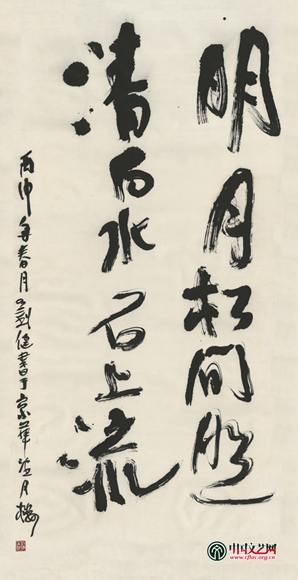 明月松间照
清泉石上流
丙申年春月 剑健書于京華 月楼
中国文艺网
www.cflac.org.cn